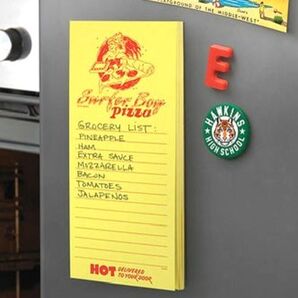 PLAYGROUND OF THE MIDDLE-WEST
Surfer Boy
pizza
GROCERY LIST:
PINEAPPLE
HAM
EXTRA SAUCE
MOZZARELLA
BACON
TOMATOES
JALAPENOS
HOT DELIVERED
TO YOUR DOOR
E
HAWKINS
HIGH SCHOOL